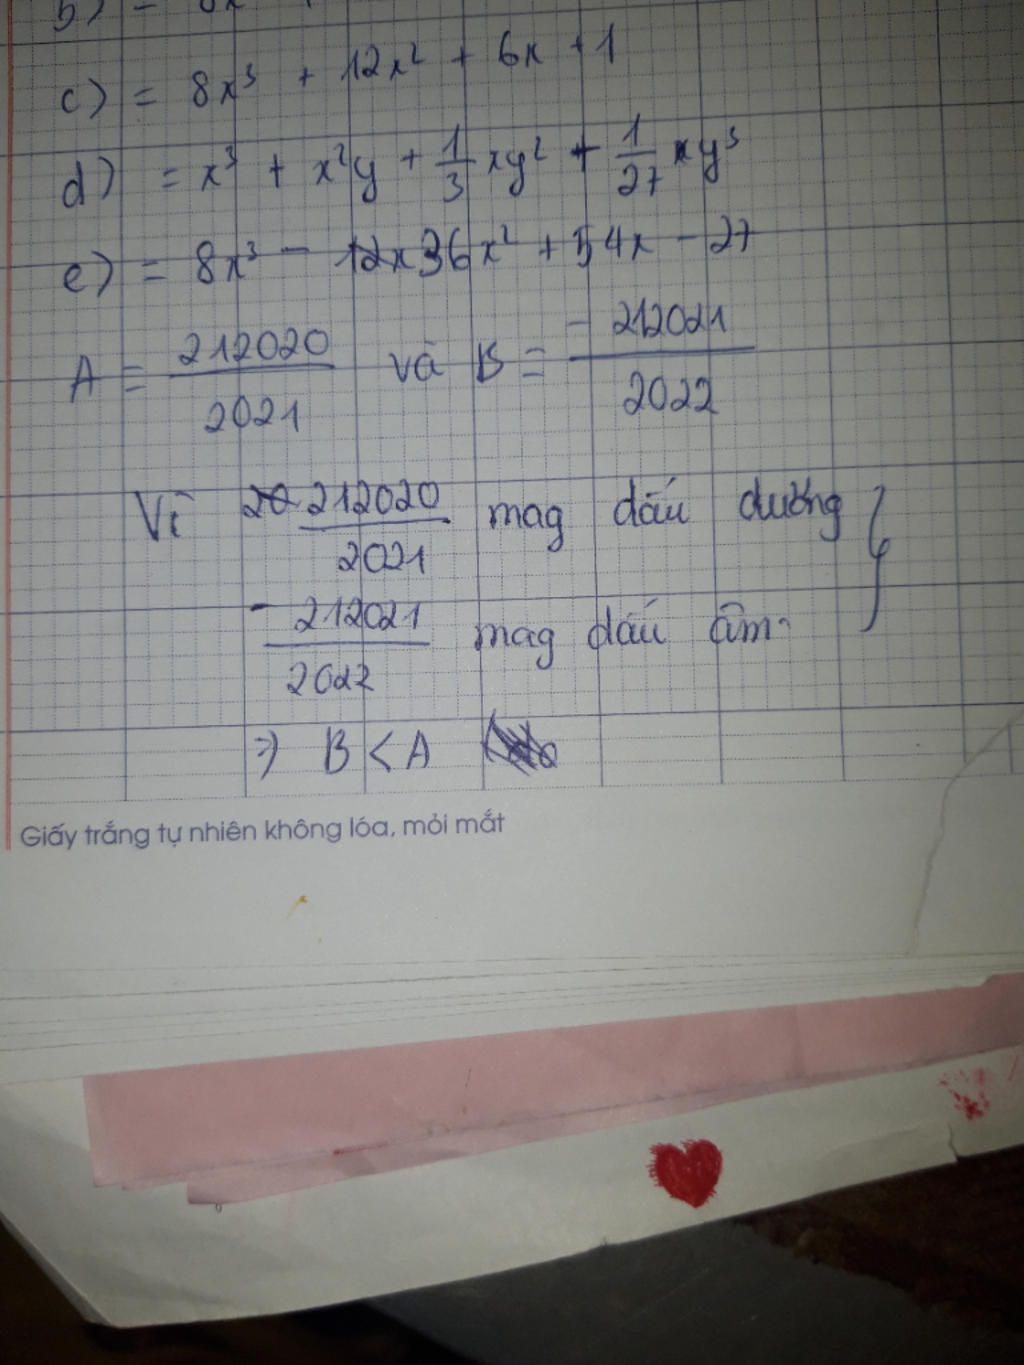 b) = 8x
c) = 8x³ + 12x² + 6x + 1
d) = x³ + x²y + 1/3 xy² + 1/27 xy³
e) = 8x³ - 12x36x² + 54x - 27
A = 212020/2021 và B = -212021/2022
Vì 20 212020/2021 mag dấu dương
-212021/2022 mag dấu âm
=> B < A
Giấy trắng tự nhiên không lóa, mỏi mắt